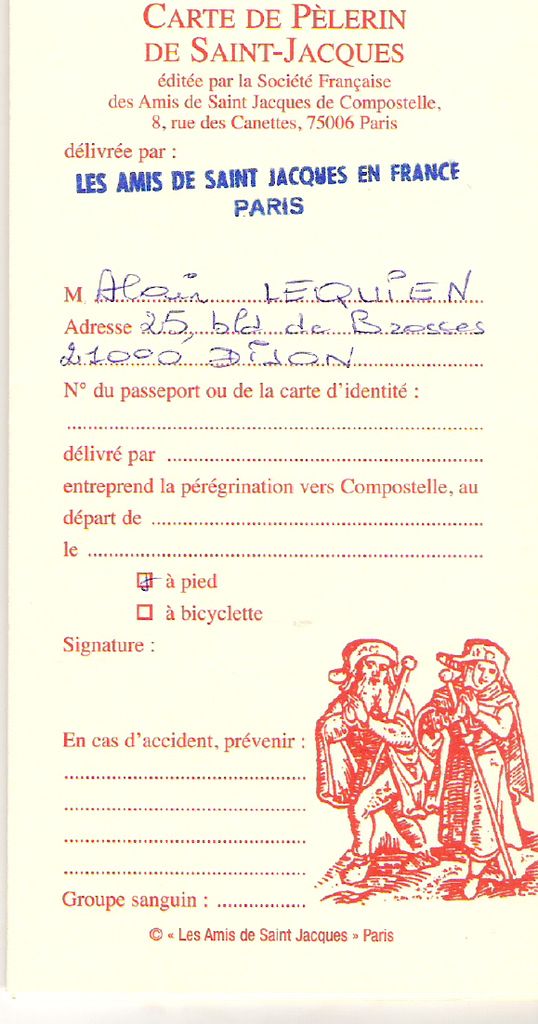 CARTE DE PÈLERIN
DE SAINT-JACQUES
éditée par la Société Française
des Amis de Saint Jacques de Compostelle,
8, rue des Canettes, 75006 Paris
délivrée par :
LES AMIS DE SAINT JACQUES EN FRANCE
PARIS
M Alain LEQUIEN
Adresse 25, bld de Brosses
21000 DIJON
N° du passeport ou de la carte d'identité :
délivré par
entreprend la pérégrination vers Compostelle, au
départ de
le
à pied
à bicyclette
Signature :
En cas d'accident, prévenir :
Groupe sanguin :
© « Les Amis de Saint Jacques » Paris